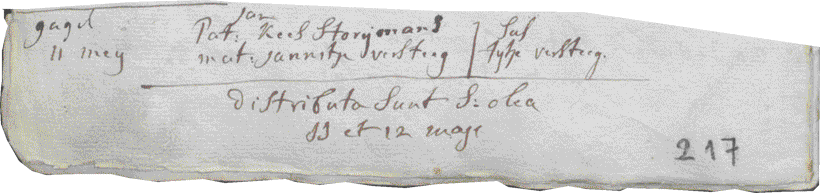 gagel Pat: Jan Kees Storijmans Sus
11 meij mat: Jannitje versteeg tytje versteeg.
distributa sunt S: olea
11 et 12 maije
217